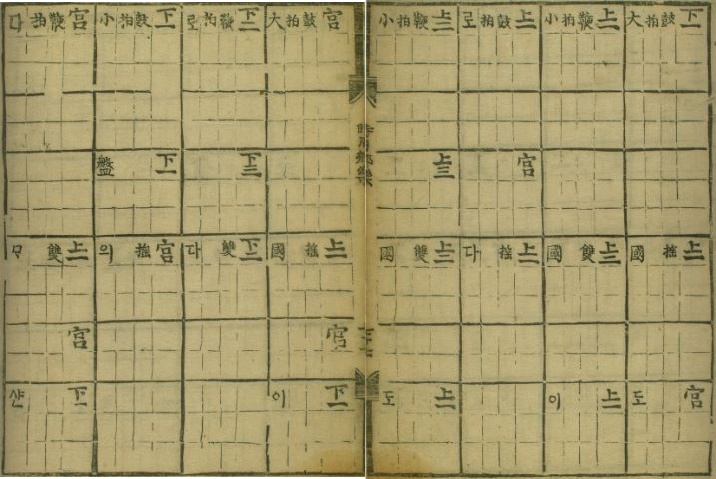 下一鼓拍大
上一搖國
宮도
上一鞭拍小
上二雙國
上一이
上一鼓拍로
宮
上一搖다
上二鞭拍小
上三
上三雙國
上一도
宮鼓拍大
上一搖國
宮
下一이
下二鞭拍로
下三
下二雙다
下一鼓拍小
下一盤
宮搖의
宮鞭拍다
上一雙
宮
下一샨